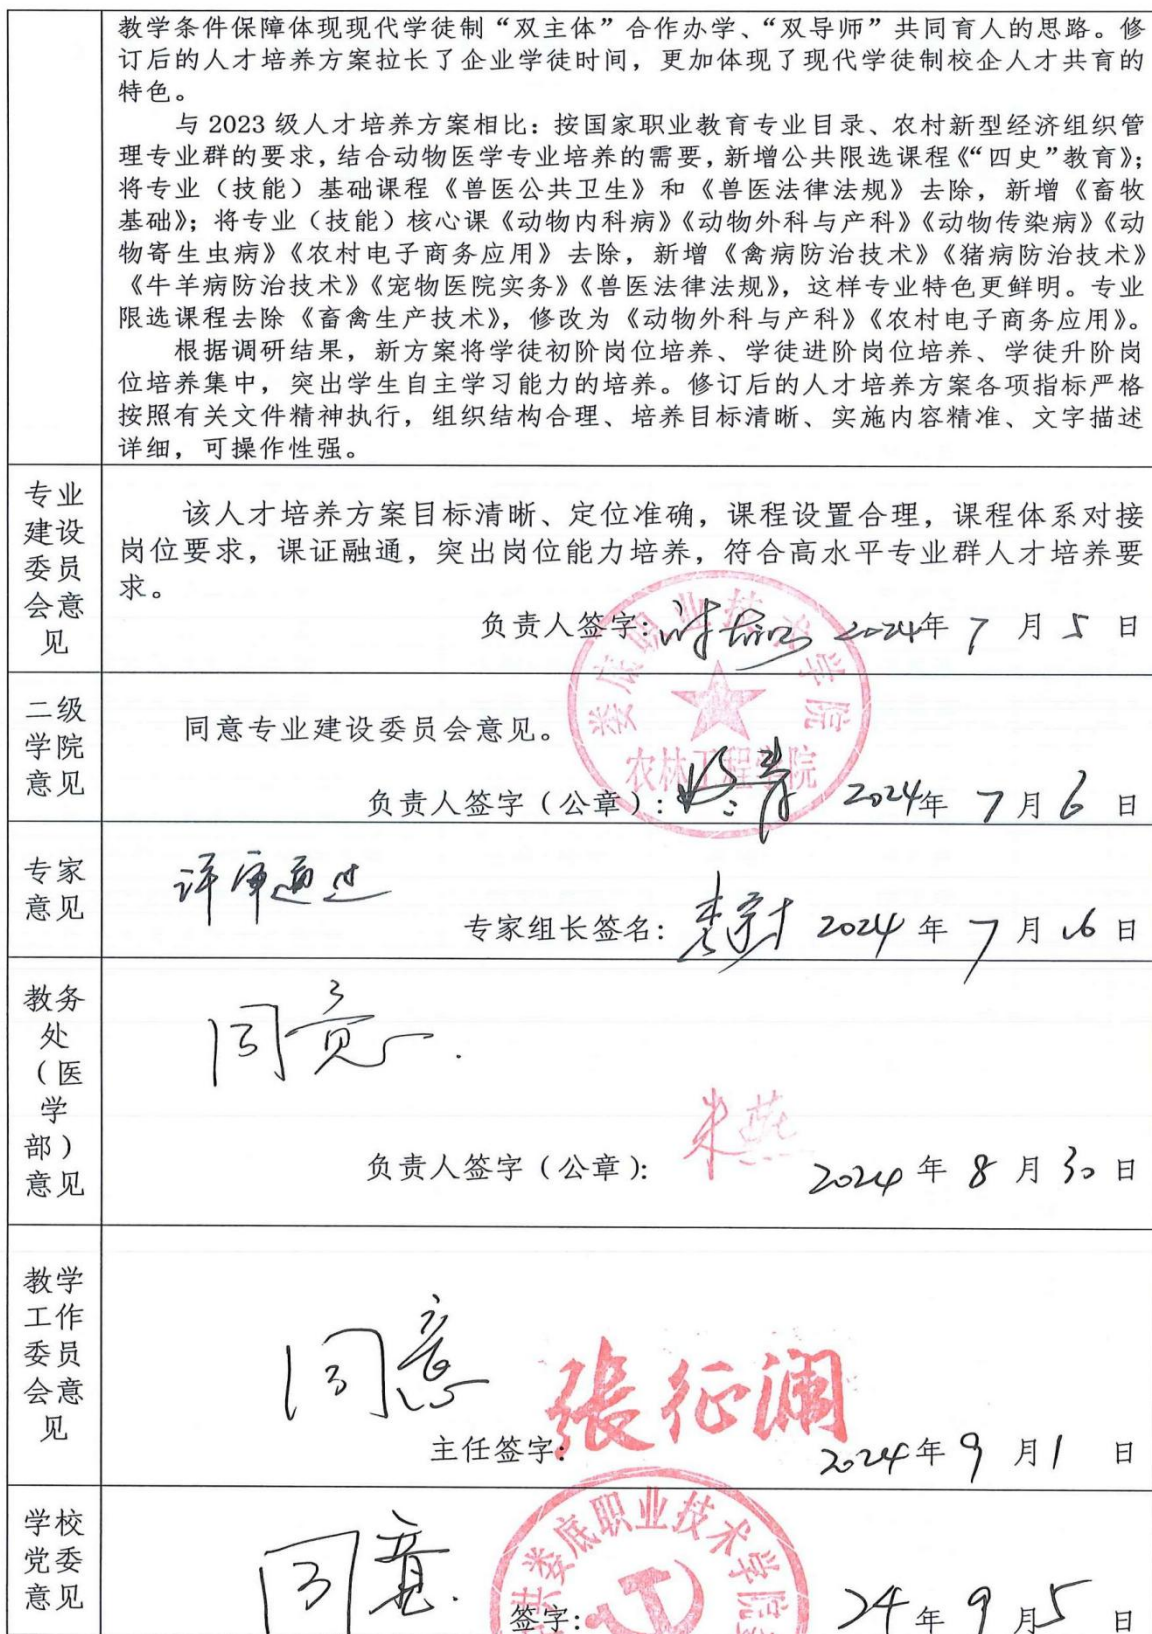 教学条件保障体现现代学徒制“双主体”合作办学、“双导师”共同育人的思路。修
订后的人才培养方案拉长了企业学徒时间，更加体现了现代学徒制校企人才共育的
特色。
与 2023 级人才培养方案相比：按国家职业教育专业目录、农村新型经济组织管
理专业群的要求，结合动物医学专业培养的需要，新增公共限选课程《“四史”教育》；
将专业（技能）基础课程《兽医公共卫生》和《兽医法律法规》去除，新增《畜牧
基础》；将专业（技能）核心课《动物内科病》《动物外科与产科》《动物传染病》《动
物寄生虫病》《农村电子商务应用》去除，新增《禽病防治技术》《猪病防治技术》
《牛羊病防治技术》《宠物医院实务》《兽医法律法规》，这样专业特色更鲜明。专业
限选课程去除《畜禽生产技术》，修改为《动物外科与产科》《农村电子商务应用》。
根据调研结果，新方案将学徒初阶岗位培养、学徒进阶岗位培养、学徒升阶岗
位培养集中，突出学生自主学习能力的培养。修订后的人才培养方案各项指标严格
按照有关文件精神执行，组织结构合理、培养目标清晰、实施内容精准、文字描述
详细，可操作性强。
专业
建设
委员
会意
见
该人才培养方案目标清晰、定位准确，课程设置合理，课程体系对接
岗位要求，课证融通，突出岗位能力培养，符合高水平专业群人才培养要
求。
负责人签字： 2024年 7 月 5 日
娄底职业技术学院
农林工程学院
二级
学院
意见
同意专业建设委员会意见。
负责人签字（公章）： 2024年 7 月 6 日
专家
意见
评审通过
专家组长签名： 2024 年 7 月 16 日
教务
处
（医
学
部）
意见
同意.
负责人签字（公章）： 朱燕 2024 年 8 月 30 日
教学
工作
委员
会意
见
同意
主任签字： 張征澜 2024年 9 月 1 日
学校
党委
意见
同意.
共娄底职业技术学院
签字： 24 年 9 月 5 日